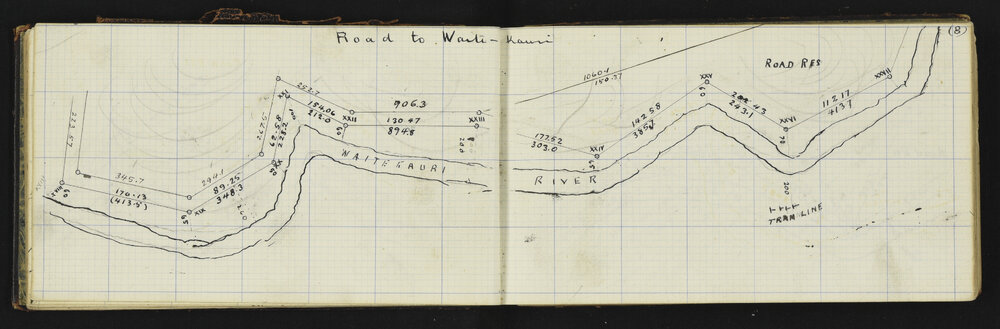 Road to Waite-Kauri
(8)
ROAD RES
1060.1
180.37
252.2
154.06
212.0
XXI
100
XXII
60
906.3
130.47
894.8
XXIII
200
177.52
303.0
XXIV
65
142.58
385.7
XXV
60
243.1
XXVI
70
200
112.17
413.7
XXVII
62.58
228.2
XX
60
294.1
89.25
348.3
XIX
65
345.7
176.13
(413.5)
XVIII
60
WAITEKAURI
RIVER
TRAM LINE